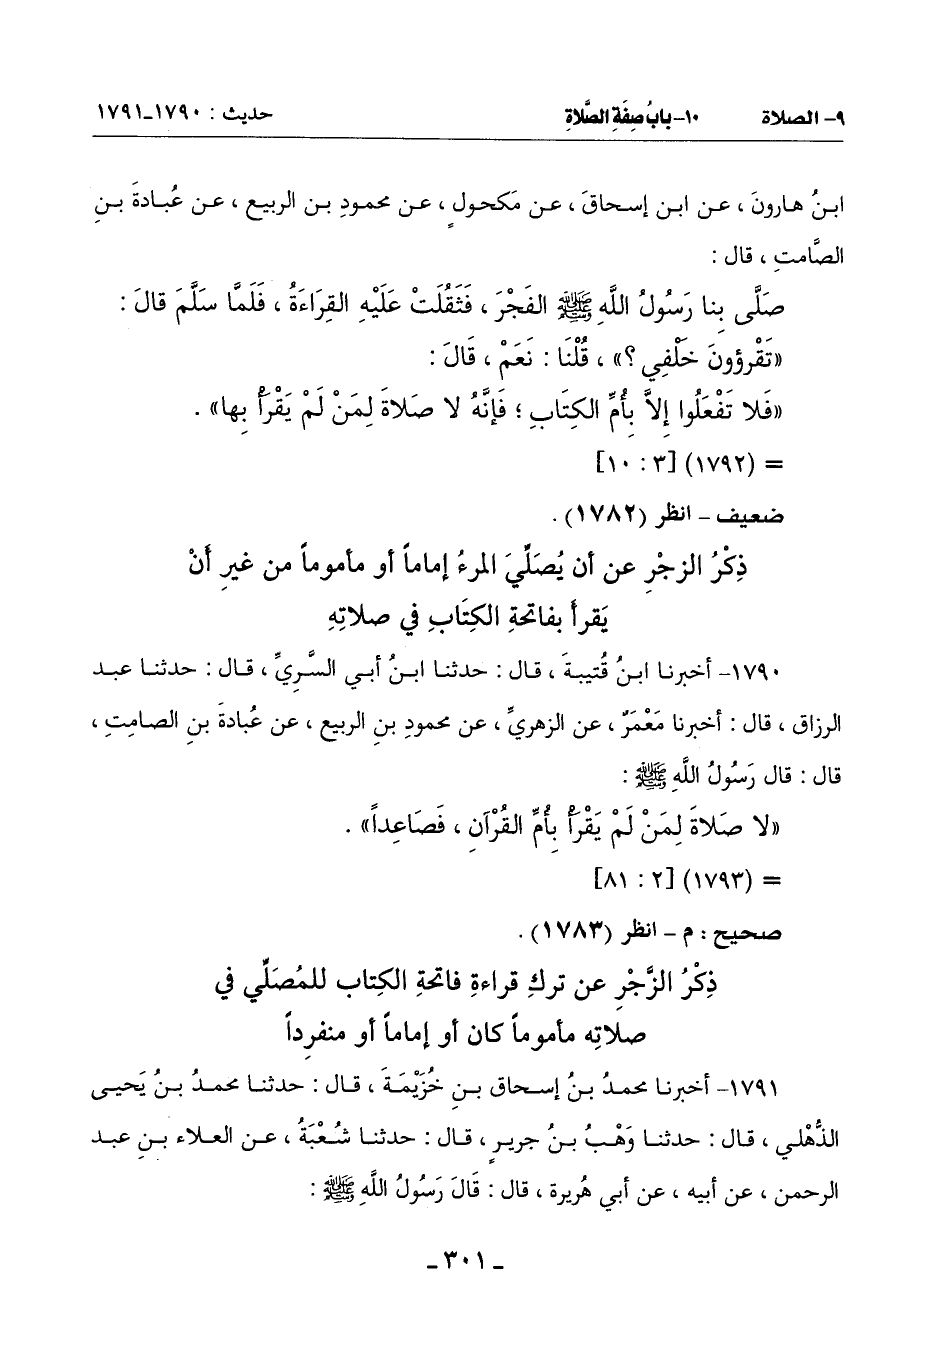 ٩- الصلاة ١٠-بابُ صِفَةِ الصَّلاةِ حديث : ١٧٩٠-١٧٩١
ابنُ هارونَ ، عن ابن إسحاقَ ، عن مَكحولٍ ، عن محمودِ بن الربيع ، عن عُبادةَ بنِ
الصَّامتِ ، قال :
صَلَّى بِنا رَسُولُ اللَّهِ ﷺ الفَجْرَ ، فَثَقُلَتْ عَلَيْهِ القِرَاءَةُ ، فَلَمَّا سَلَّمَ قالَ :
«تَقْرؤونَ خَلْفِي ؟» ، قُلْنَا : نَعَمْ ، قَالَ :
«فَلا تَفْعَلُوا إِلاَّ بِأُمِّ الكِتَابِ ؛ فَإِنَّهُ لا صَلاةَ لِمَنْ لَمْ يَقْرَأْ بِها» .
= (١٧٩٢) [٣ : ١٠]
ضعيف - انظر (١٧٨٢) .
ذِكْرُ الزجْرِ عن أن يُصَلِّيَ المرءُ إماماً أو مأموماً من غيرِ أَنْ
يَقرأَ بفاتحةِ الكِتَابِ في صلاتِهِ
١٧٩٠- أخبرنا ابنُ قُتيبةَ ، قال : حدثنا ابنُ أبي السَّريِّ ، قال : حدثنا عبد
الرزاق ، قال : أخبرنا مَعْمَرٌ ، عن الزهريِّ ، عن محمودِ بنِ الربيع ، عن عُبادةَ بنِ الصامِتِ ،
قال : قال رَسُولُ اللَّهِ ﷺ :
«لا صَلاةَ لِمَنْ لَمْ يَقْرَأْ بِأُمِّ القُرْآنِ ، فَصَاعِداً» .
= (١٧٩٣) [٢ : ٨١]
صحيح : م - انظر (١٧٨٣) .
ذِكْرُ الزَّجْرِ عن تركِ قراءةِ فاتحةِ الكِتاب للمُصَلِّي في
صلاتِه مأموماً كان أو إماماً أو منفرِداً
١٧٩١- أخبرنا محمدُ بنُ إسحاق بنِ خُزَيْمَةَ ، قال : حدثنا محمدُ بنُ يَحيى
الذُّهْلي ، قال : حدثنا وَهْبُ بنُ جريرٍ ، قال : حدثنا شُعْبَةُ ، عن العلاء بنِ عبد
الرحمن ، عن أبيه ، عن أبي هُريرة ، قال : قَالَ رَسُولُ اللَّهِ ﷺ :
- ٣٠١ -